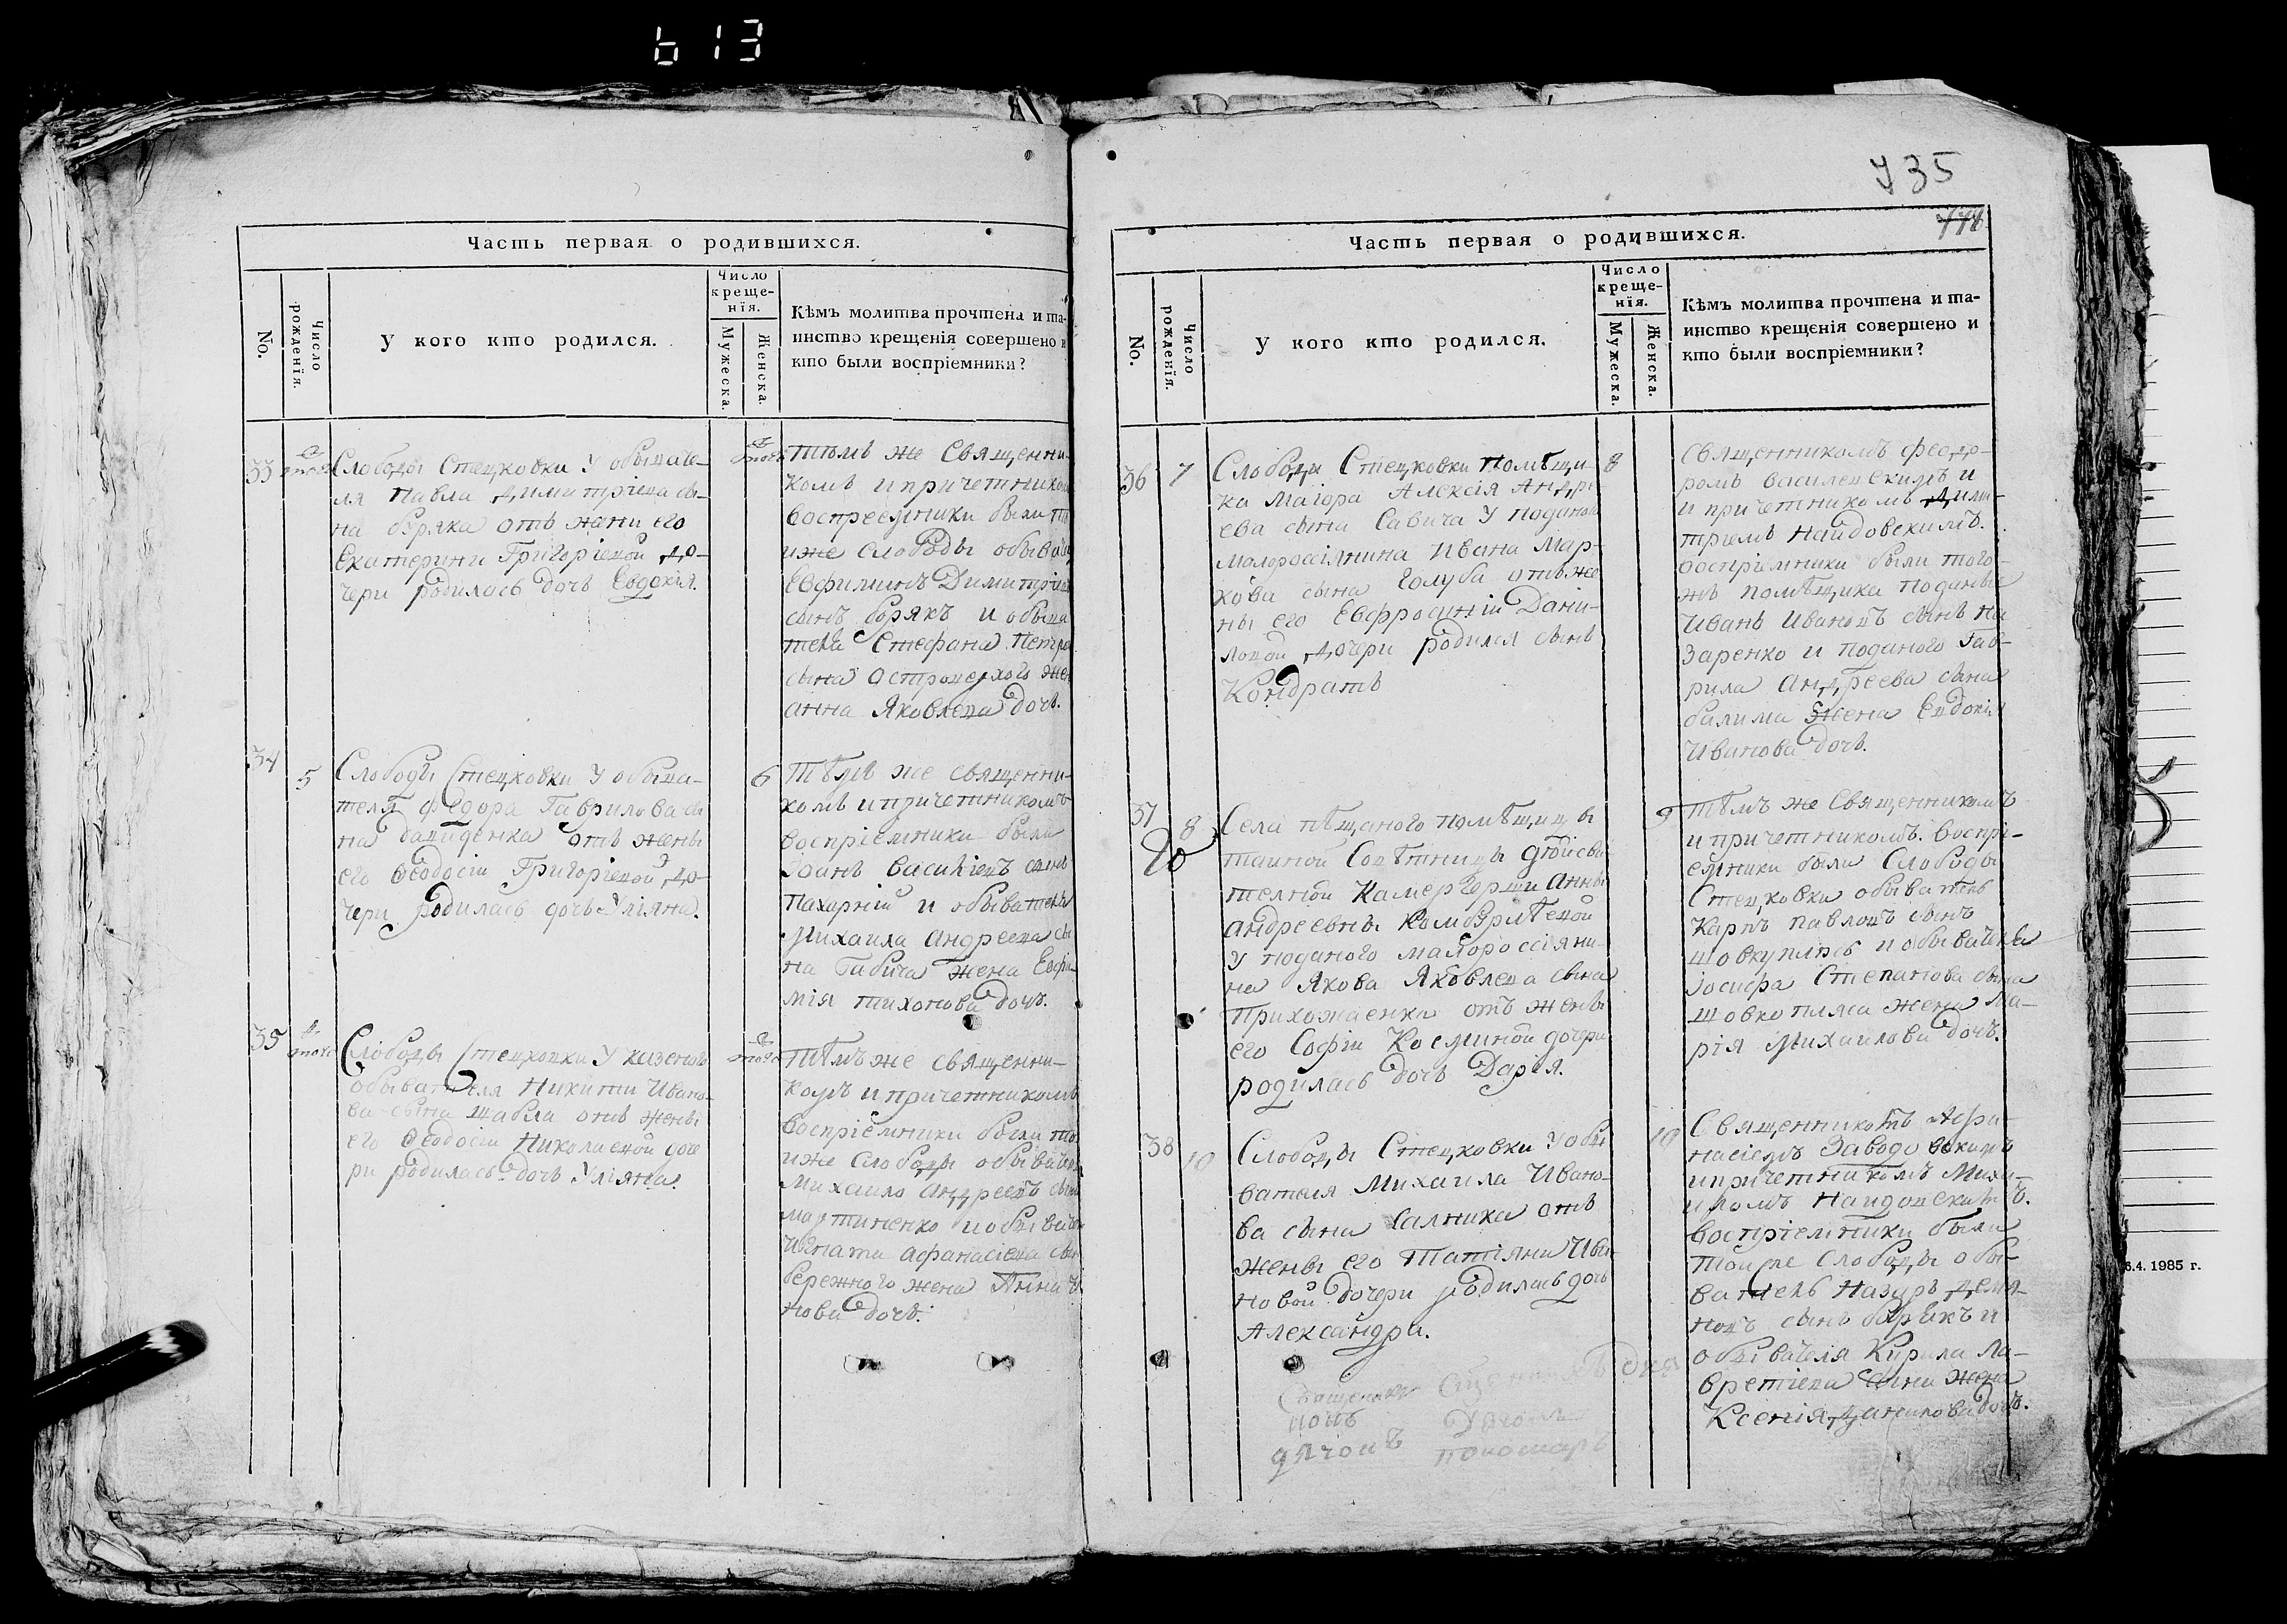 613
Часть первая о родившихся.
No.
Число рожденїя.
У кого кто родился.
Число крещенїя.
Мужеска.
Женска.
Кѣмъ молитва прочтена и та-
инство крещенїя совершено и
кто были воспрїемники?
33
Слободы Стецковки у обывате-
ля Павла Димитріева сы-
на боряка отъ жени его
Екатерини Григоріевой до-
чери родилась дочь Евдокія.
тѣмъ же Священни-
комъ и причетником
воспреемники были то
иже слободы обыват
Евфимиъ Димитріев
сынъ борякъ и обыва
теля Стефана Петро
сына Островерхого жен
анна Яковлева дочь.
34
5
Слободы Стецковки у обыва-
теля Федора Гаврилова сы
на Давиденка отъ жены
его Феодосіи Григоріевой до-
чери родилась дочь Уліяна.
6
Тѣмъ же священни-
комъ и причетникомъ
воспріемники были
Іоанъ Василіевъ сынъ
пахарній и обывателя
Михаила Андреева сы
на Бабича жена Евфи-
мія тихонова дочь.
35
Слободы Стецковки у казеного
обывателя Никити Ивано-
ва сына шабла отъ жены
его Феодосіи Николаевой доче
ри родилась дочь Уліяна.
тѣмъ же священни-
комъ и причетникомъ
воспріемники были то
иже слободы обывател
Михаило Андреевъ сынъ
мартиненко и обывател
Игната Афанасіева сы
бережного жена Анна И
нова дочь.
735
778
Часть первая о родившихся.
No.
Число рожденїя.
У кого кто родился.
Число крещенїя.
Мужеска.
Женска.
Кѣмъ молитва прочтена и та-
инство крещенїя совершено и
кто были воспрїемники?
36
7
Слободи Стецковки помѣщи-
ка Маіора Алексія Андре
ева сына Савича у поданого
малороссіянина Ивана Мар-
кова сына Голуба отъ же
ны его Евфросиніи Дани-
ловой дочери родился сынъ
Кондратъ
8
священникомъ Федо-
ромъ василевскимъ и
и причетникомъ Дими-
тріемъ Найдовскимъ.
воспріемники были того-
жъ помѣщика поданый
Иванъ Ивановъ сынъ На
заренко и поданого Гав-
рила Андреева сына
балима жена Евдокія
Иванова дочь.
37
8
Села пѣщаного помѣщици
таиной Совѣтници дѣйстви
телной Камергерши Анны
Андреевны Комбурлѣевой
у поданого малороссіяни-
на Якова Яковлева сына
Прихоженка отъ жены
его Софіи Косминой дочери
родилась дочь Дарія.
9
тѣмъ же Священникомъ
и причетникомъ. воспрі-
емники были Слободы
Стецковки обыватель
Карпъ павловъ сынъ
шовкуплясъ и обывателя
Іосифа Степанова сына
шовкопляса жена Ма-
рія Михаилова дочь.
38
10
Слободы Стецковки у обы
вателя Михаила Ивано-
ва сына Салника отъ
жены его Татіяни Ива
новой дочери родилась дочь
Александра.
10
Священникомъ Афа-
насіемъ Заводовскимъ
и причетникомъ Миха-
иломъ Найдовскимъ.
воспріемники были
тойже Слободы обы-
ватель Назаръ Демя-
новъ сынъ борякъ и
обывателя Кирила Ла-
врентіева сына жена
Ксенія Данилова дочь.
Священикъ
дячокъ
пономарь
6.4. 1985 г.